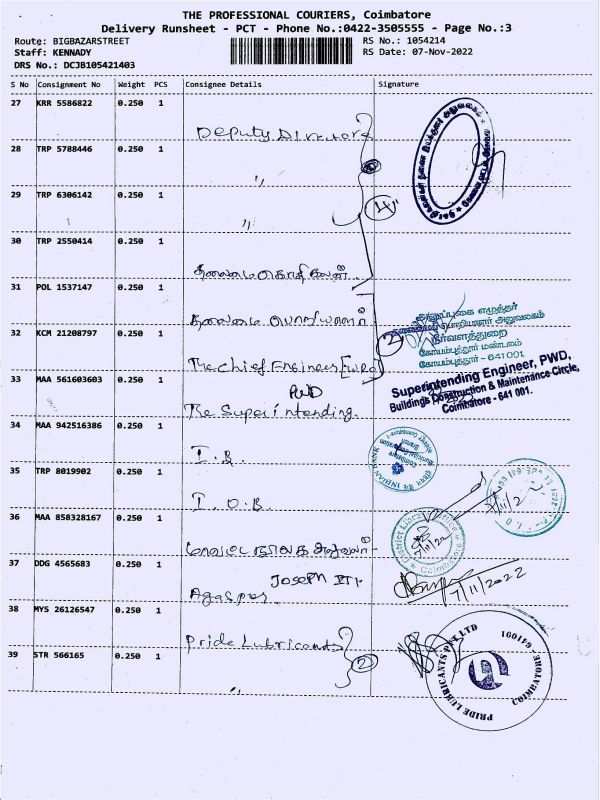 THE PROFESSIONAL COURIERS, Coimbatore
Delivery Runsheet - PCT - Phone No.:0422-3505555 - Page No.:3
Route: BIGBAZARSTREET
RS No.: 1054214
Staff: KENNADY
RS Date: 07-Nov-2022
DRS No.: DCJB105421403
S No Consignment No Weight PCS Consignee Details Signature
27 KRR 5586822 0.250 1
Deputy Director
28 TRP 5788446 0.250 1
"
29 TRP 6306142 0.250 1
"
4
30 TRP 2550414 0.250 1
31 POL 1537147 0.250 1
தலைமை பொறியாளர்
அனுப்புகை எழுத்தர்
தலைமைப் பொறியாளர் அலுவலகம்
நீர்வளத்துறை
கோயம்புத்தூர் மண்டலம்
கோயம்புத்தூர் - 641 001
32 KCM 21208797 0.250 1
2
The Chief Engineer [WRO]
33 MAA 561603603 0.250 1
PWD
The Superintending.
Superintending Engineer, PWD,
Buildings Construction & Maintenance Circle,
Coimbatore - 641 001.
34 MAA 942516386 0.250 1
I.B.
INDIAN BANK
35 TRP 8019902 0.250 1
I.O.B.
36 MAA 858328167 0.250 1
District Library Office
Coimbatore
7/11/22
37 DDG 4565683 0.250 1
Joseph
7/11/2022
38 MYS 26126547 0.250 1
Pride Lubricants
2
39 STR 566165 0.250 1
"
PRIDE LUBRICANTS PVT LTD
COIMBATORE - 641091